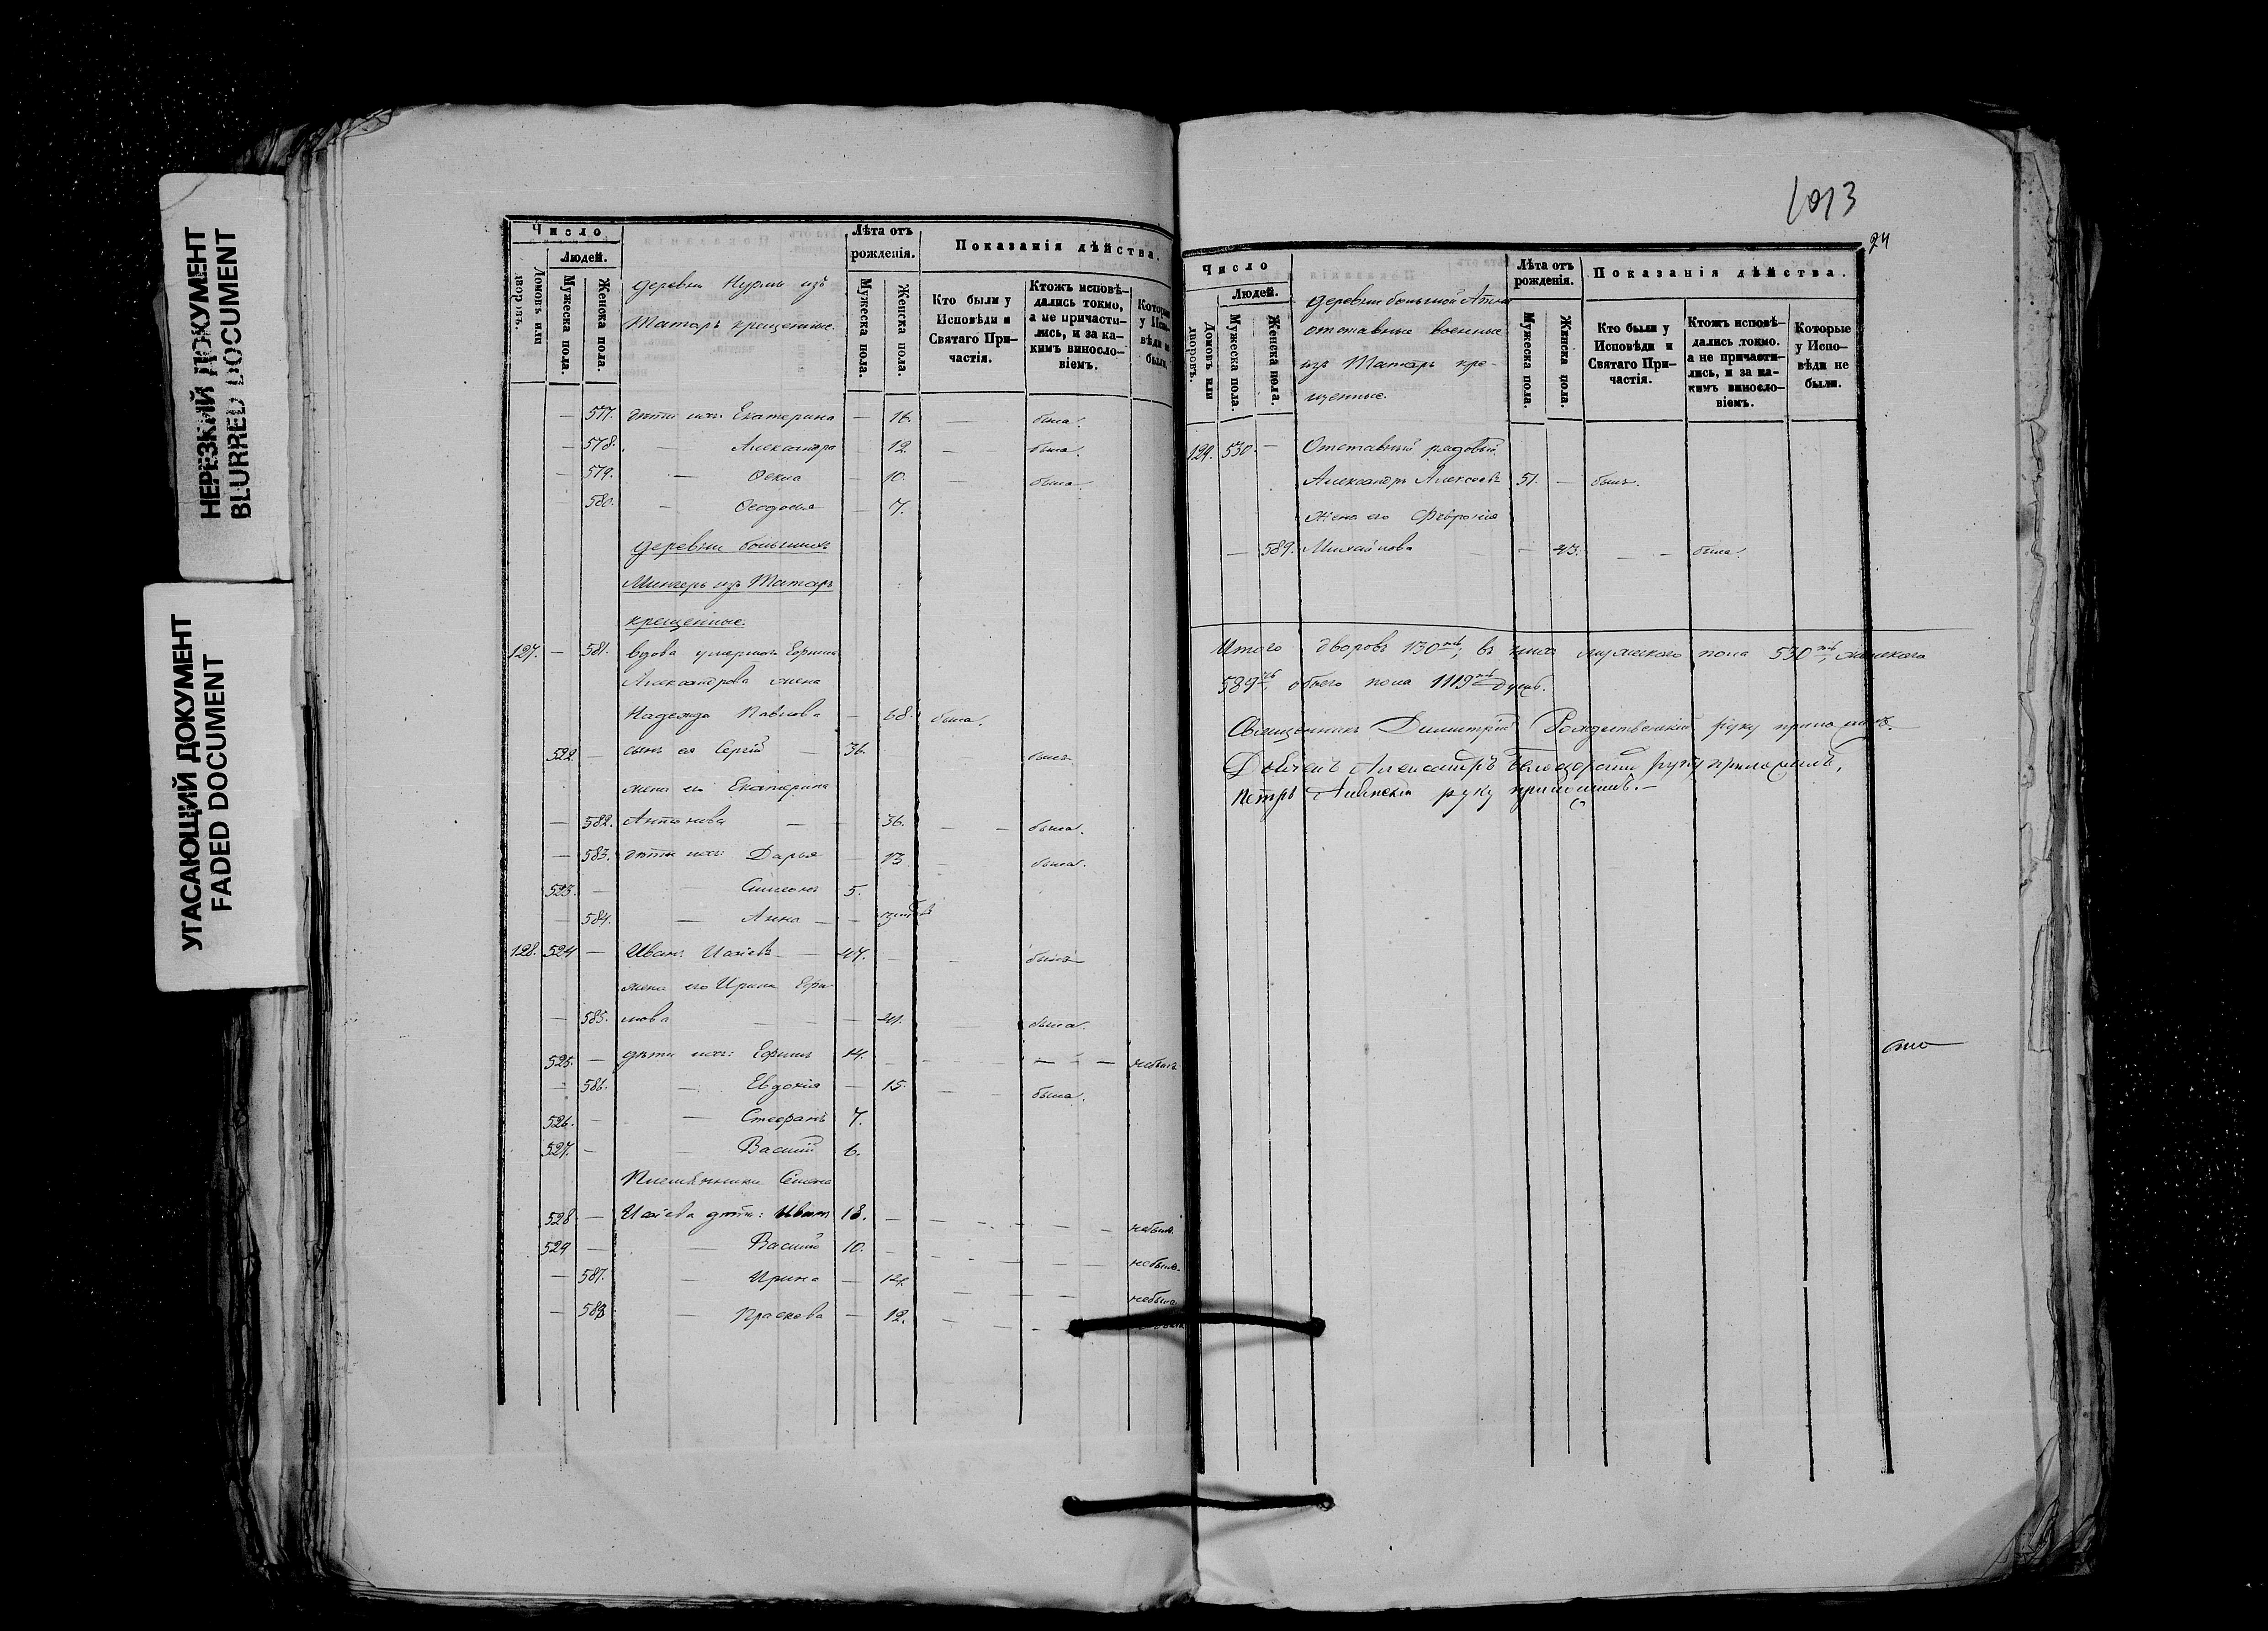 НЕРЕЗКИЙ ДОКУМЕНТ
BLURRED DOCUMENT
УГАСАЮЩИЙ ДОКУМЕНТ
FADED DOCUMENT
Число
Людей.
Домовъ или дворовъ.
Мужеска пола.
Женска пола.
деревни Нурмы изъ
Татаръ крещенные.
Лѣта отъ рожденія.
Мужеска пола.
Женска пола.
Показанія дѣйства.
Кто были у Исповѣди и Святаго Причастія.
Ктожъ исповѣдались токмо, а не причастились, и за какимъ винословіемъ.
Которые у Исповѣди не были.
— 577. дѣти ихъ: Екатерина — 16. — была.
— 578. — Александра — 12. — была.
— 579. — Фекла — 10. — была.
580. — Феодосья — 7.
деревни большихъ
Мингеръ изъ Татаръ
крещенные.
127. — 581. вдова умершаго Ефима
Александрова жена
Надежда Павлова — 68. была.
522 — сынъ ея Сергій — 36. былъ
жена его Екатерина
— 582. Антонова — 36. — — была.
— 583. дѣти ихъ: Дарья — 13 — была.
523. — — Симеонъ 5.
— 584. — Анна — —
128. 524 — Иванъ Исаевъ — 47. — былъ
жена его Ирина Ефи-
— 585. мова — 41. — была.
525. — дѣти ихъ: Ефимъ 14. — — — — небылъ
— 586. — Евдокія — 15. — — была.
526. — — Стефанъ 7.
527. — — Василій 6.
Племянники Семена
528 — Исаева дѣти: Иванъ 18. — — — — небылъ.
529 — — Василій 10. — — — — небылъ.
— 587. — Ирина — 14. — — — небыла
— 588 — Прасковья — 12. — — —
1013
24
Число
Людей.
Домовъ или дворовъ.
Мужеска пола.
Женска пола.
деревни большой Атни
отставные военные
изъ Татаръ кре-
щенные.
Лѣта отъ рожденія.
Мужеска пола.
Женска пола.
Показанія дѣйства.
Кто были у Исповѣди и Святаго Причастія.
Ктожъ исповѣдались токмо. а не причастились, и за какимъ винословіемъ.
Которые у Исповѣди не были.
129. 530. — Отставный рядовый
Александръ Алексѣевъ 51. — былъ.
Жена его Февронія
— 589. Михайлова — 43. — — была.
Итого дворовъ 130ть, въ нихъ мужескаго пола 530ть, женскаго
589ть, обоего пола 1119ть душъ.
Священникъ Димитрій Рождественскій руку приложилъ.
Александръ руку приложилъ,
Петръ руку приложилъ.—